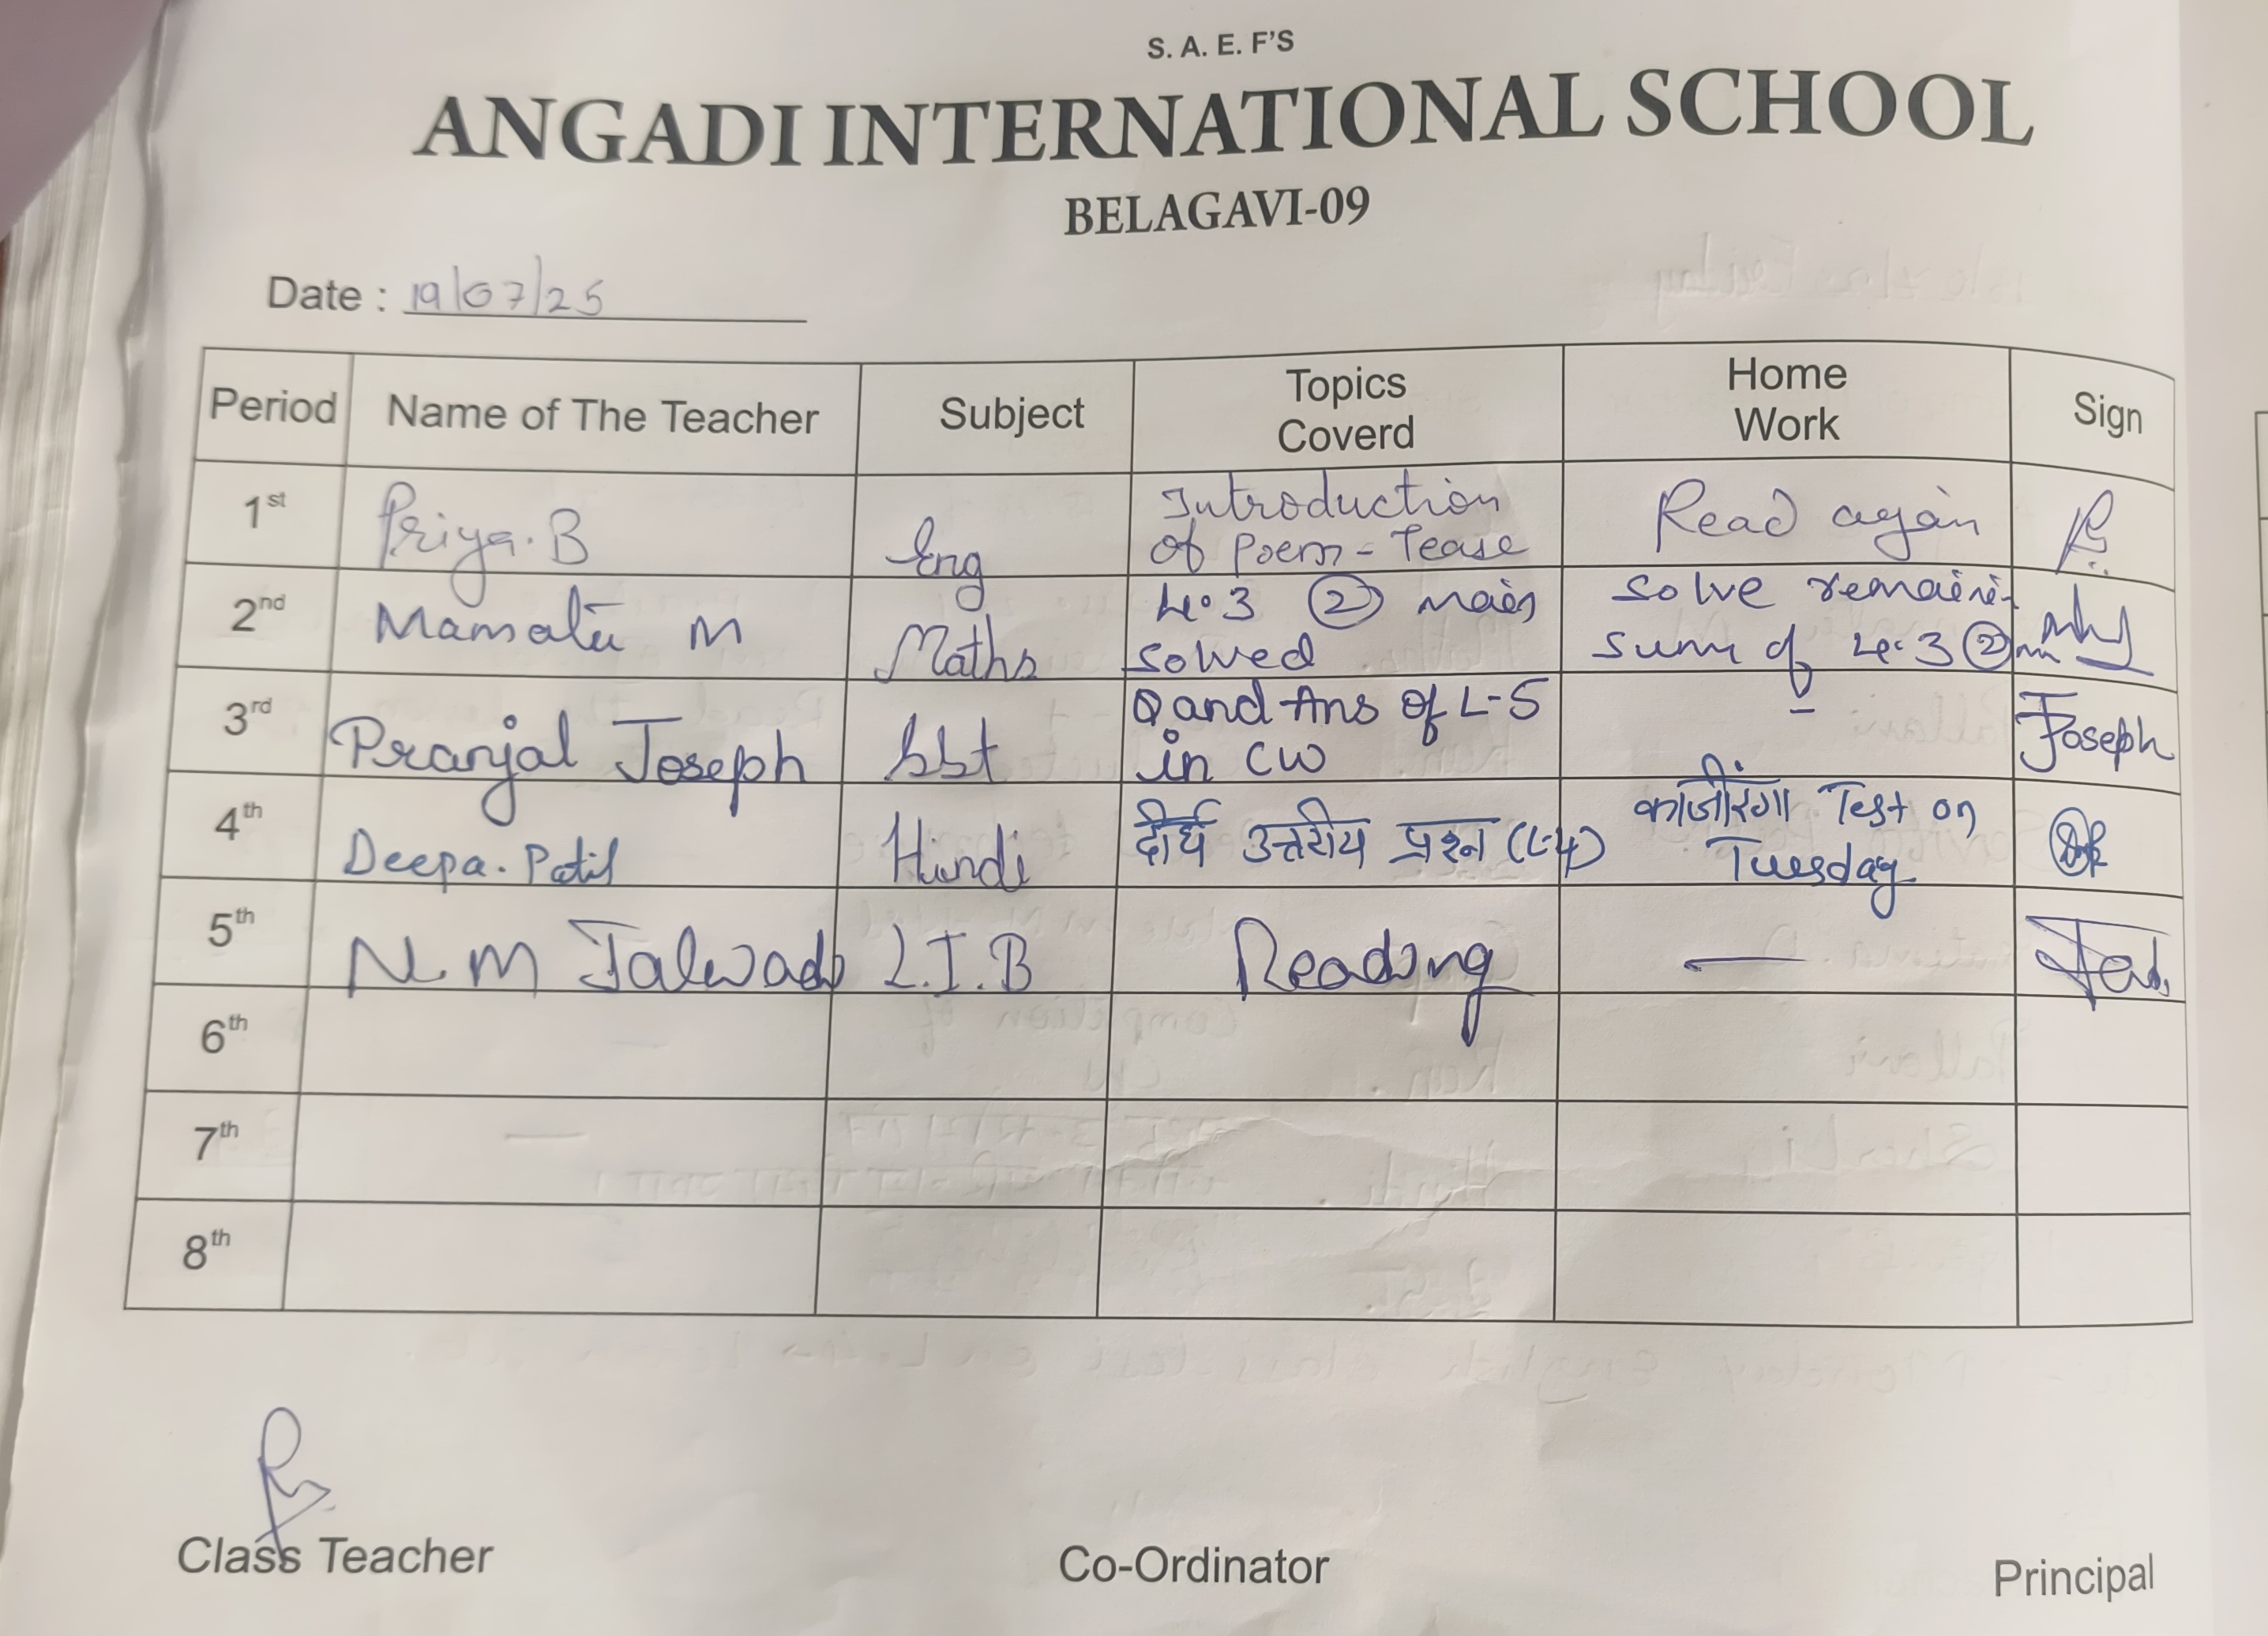 S. A. E. F'S
ANGADI INTERNATIONAL SCHOOL
BELAGAVI-09
Date : 19/07/25
Period Name of The Teacher Subject Topics Coverd Home Work Sign
1st Priya.B Eng Introduction of Poem - Tease Read again
2nd M Maths 4.3 (2) main solved solve sum of 4.3 (2)
3rd Pranjal Joseph SSt Q and Ans of L-5 in CW - Joseph
4th Deepa. Patil Hindi दीर्घ उत्तरीय प्रश्न (L-4) काजीरंगा Test on Tuesday
5th N M L.I.B Reading —
6th
7th
8th
Class Teacher Co-Ordinator Principal